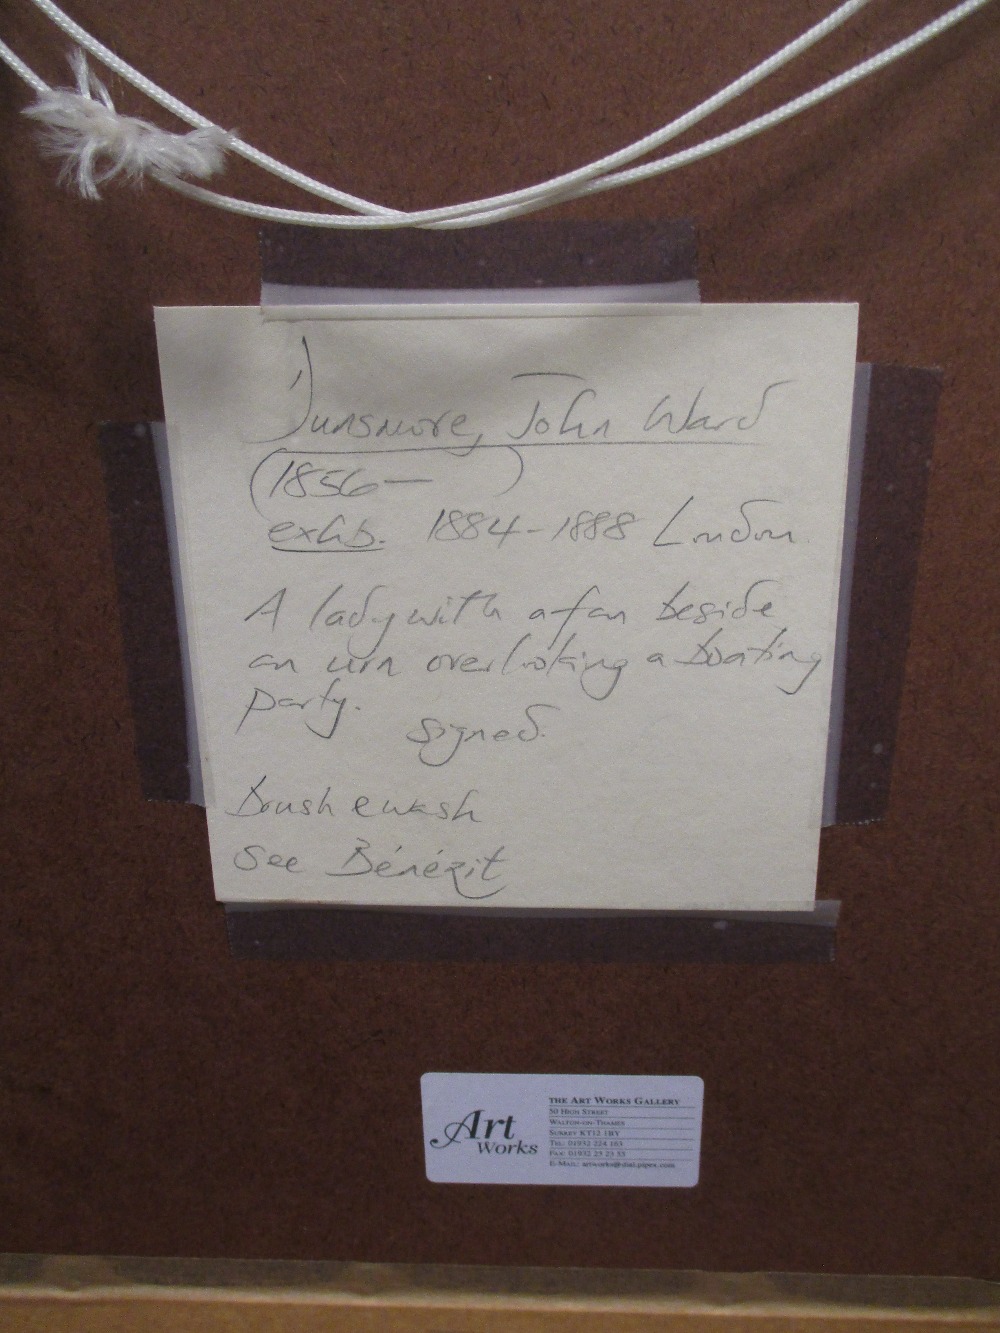 Dunsmore, John Ward
(1856— )
exhib. 1884-1888 London
A lady with a fan beside
an urn overlooking a boating
party.
signed.
brush & wash
See Bénézit
Art
Works
THE ART WORKS GALLERY
50 HIGH STREET
WALTON-ON-THAMES
SURREY KT12 1BY
TEL: 01932 224 183
FAX: 01932 23 23 33
E-MAIL: artworks@dial.pipex.com